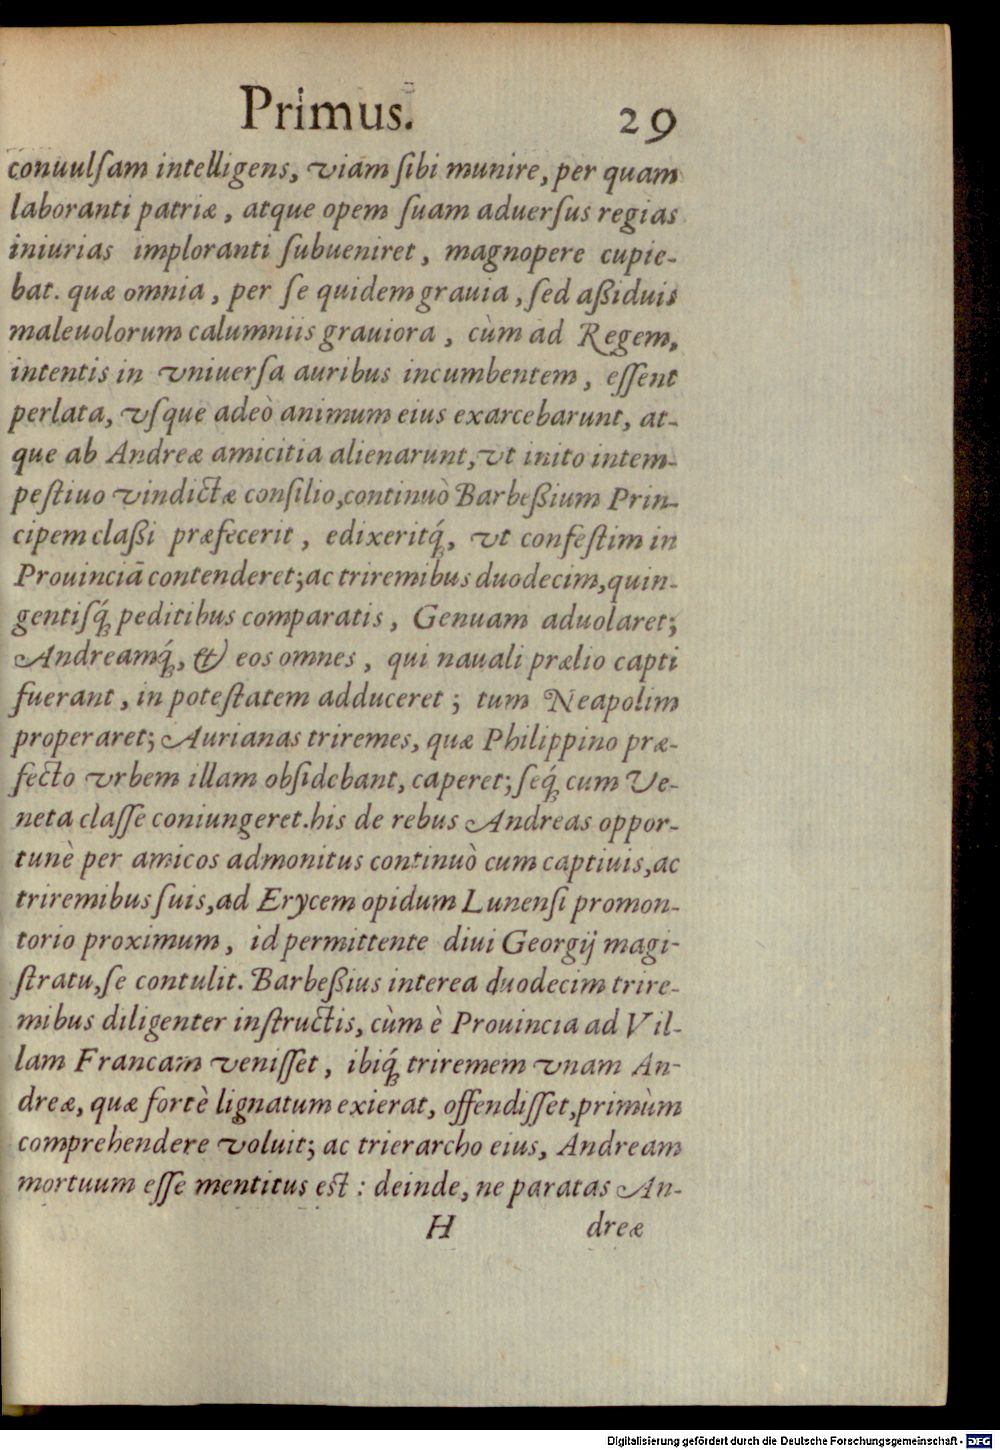 Primus. 29
conuulſam intelligens, viam ſibi munire, per quam
laboranti patriæ, atque opem ſuam aduerſus regias
iniurias imploranti ſubueniret, magnopere cupie-
bat. quæ omnia, per ſe quidem grauia, ſed aßiduis
maleuolorum calumniis grauiora, cùm ad Regem,
intentis in vniuerſa auribus incumbentem, eſſent
perlata, vſque adeò animum eius exarcebarunt, at-
que ab Andreæ amicitia alienarunt, vt inito intem-
peſtiuo vindictæ conſilio, continuò Barbeßium Prin-
cipem claßi præfecerit, edixeritq́;, vt confeſtim in
Prouinciā contenderet; ac triremibus duodecim, quin-
gentiſq́; peditibus comparatis, Genuam aduolaret;
Andreamq́;, & eos omnes, qui nauali prælio capti
fuerant, in poteſtatem adduceret; tum Neapolim
properaret; Aurianas triremes, quæ Philippino præ-
fecto vrbem illam obſidebant, caperet; ſeq́; cum Ve-
neta claſſe coniungeret. his de rebus Andreas oppor-
tunè per amicos admonitus continuò cum captiuis, ac
triremibus ſuis, ad Erycem opidum Lunenſi promon-
torio proximum, id permittente diui Georgij magi-
ſtratu, ſe contulit. Barbeßius interea duodecim trire-
mibus diligenter inſtructis, cùm è Prouincia ad Vil-
lam Francam veniſſet, ibiq́; triremem vnam An-
dreæ, quæ fortè lignatum exierat, offendiſſet, primùm
comprehendere voluit; ac trierarcho eius, Andream
mortuum eſſe mentitus eſt: deinde, ne paratas An-
H dreæ
Digitalisierung gefördert durch die Deutsche Forschungsgemeinschaft - DFG